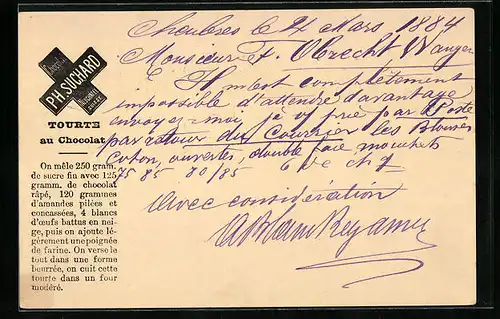 Chocolat
PH. SUCHARD
TOURTE
au Chocolat
On mêle 250 gram.
de sucre fin avec 125
gramm. de chocolat
râpé, 120 grammes
d'amandes pilées et
concassées, 4 blancs
d'œufs battus en nei-
ge, puis on ajoute lé-
gèrement une poignée
de farine. On verse le
tout dans une forme
beurrée, on cuit cette
tourte dans un four
modéré.
le 4 Mars 1884
Monsieur F. Obrecht Wangen
Il m'est complètement
impossible d'attendre davantage
envoyez-moi je v/ prie par Poste
par retour du Courrier les Blouses
Coton, ouvertes, double face
75 85 80/85 6 de ch
Avec considération